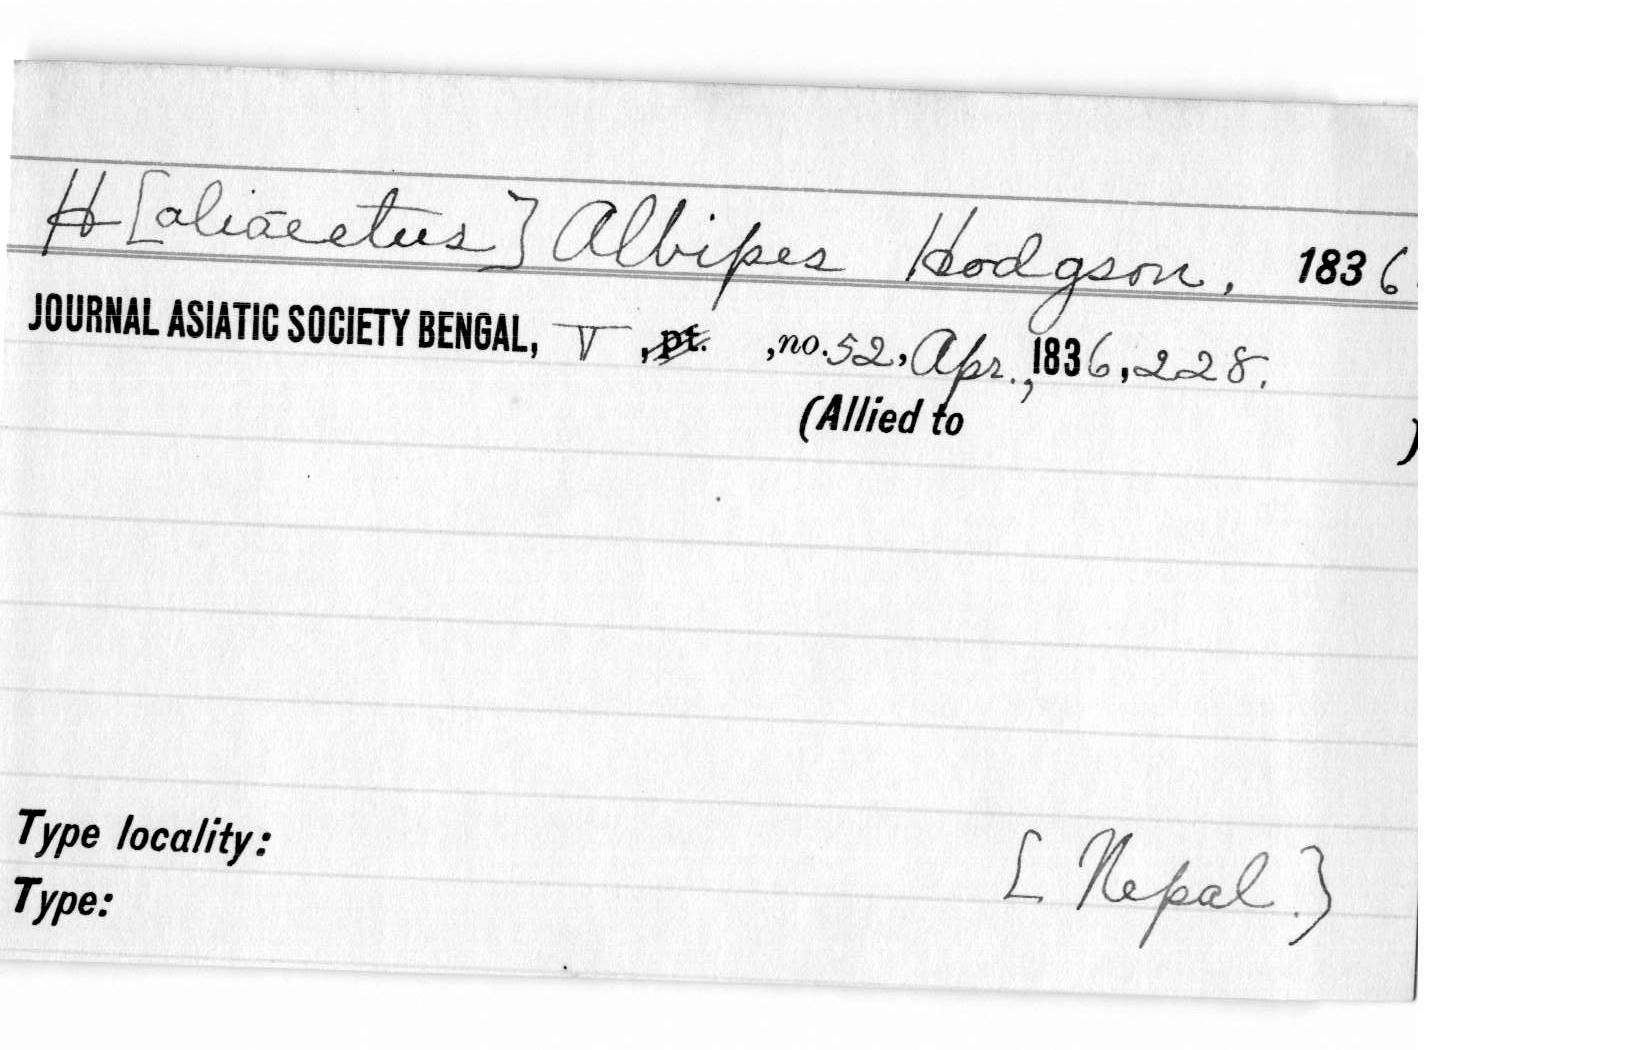 H[aliäeetus] Albipes Hodgson, 1836.
JOURNAL ASIATIC SOCIETY BENGAL, V, pt. , no. 52, Apr., 1836, 228.
(Allied to )
Type locality: [Nepal.]
Type: